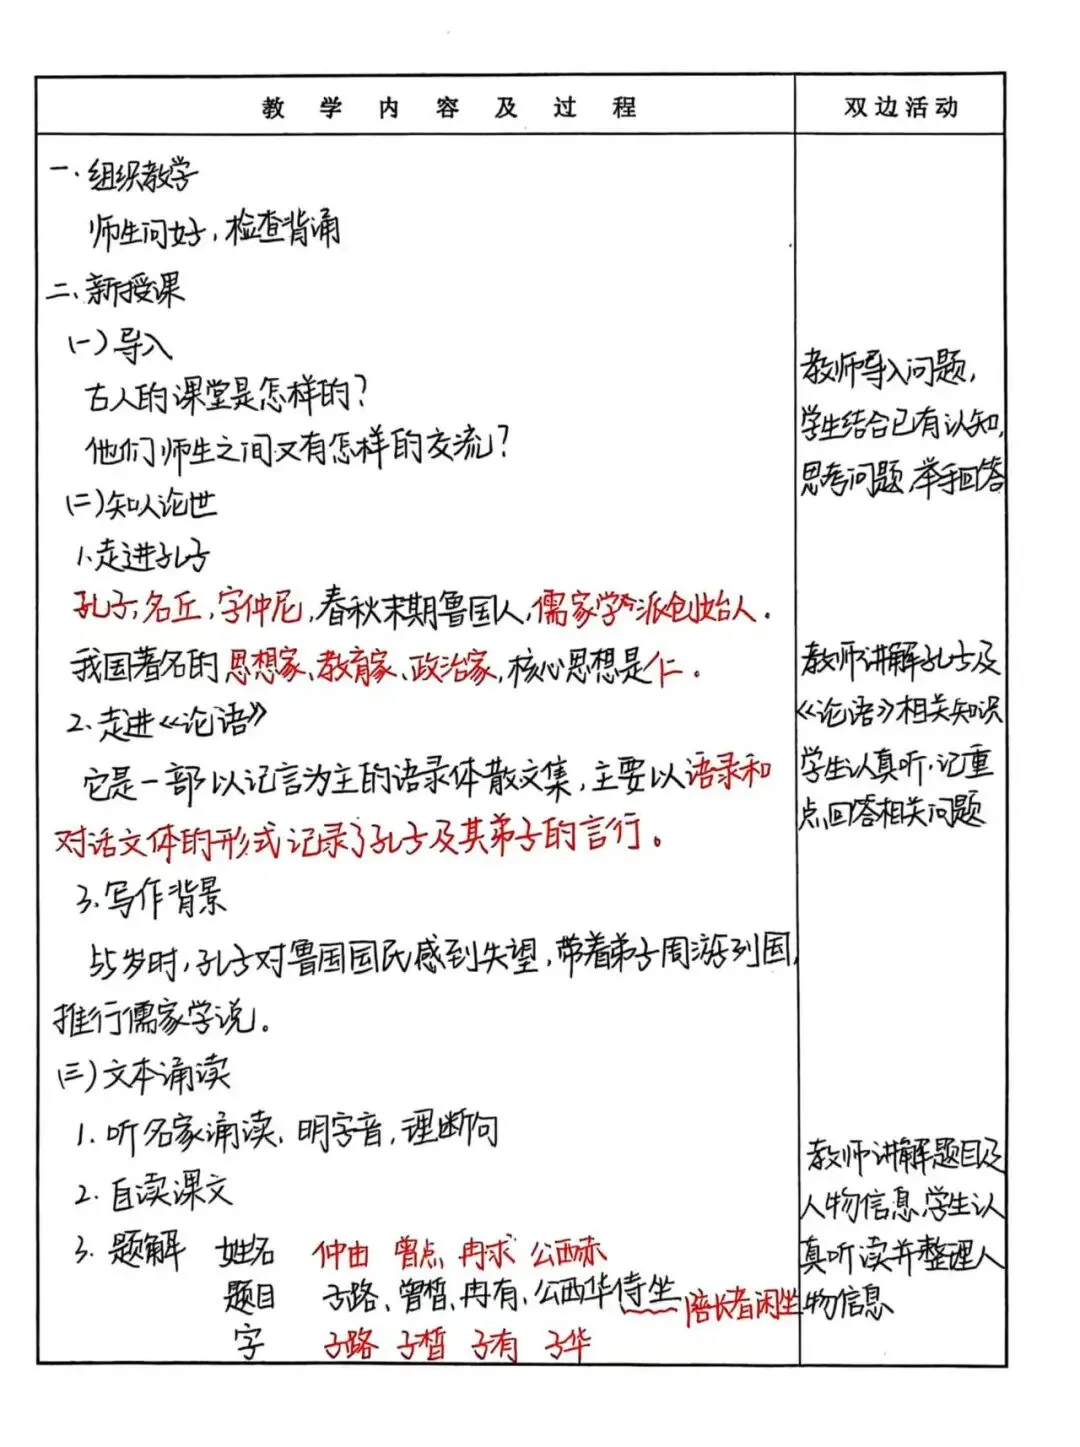 教学内容及过程
双边活动
一、组织教学
师生问好，检查背诵
二、新授课
(一)导入
古人的课堂是怎样的？
他们师生之间又有怎样的交流？
(二)知人论世
1.走进孔子
孔子，名丘，字仲尼，春秋末期鲁国人，儒家学派创始人。
我国著名的思想家、教育家、政治家，核心思想是仁。
2.走进《论语》
它是一部以记言为主的语录体散文集，主要以语录和
对话文体的形式记录了孔子及其弟子的言行。
3.写作背景
55岁时，孔子对鲁国国民感到失望，带着弟子周游列国，
推行儒家学说。
(三)文本诵读
1.听名家诵读，明字音，理断句
2.自读课文
3.题解 姓名 仲由 曾点 冉求 公西赤
题目 子路、曾皙、冉有、公西华侍坐 陪长者闲坐
字 子路 子皙 子有 子华
教师导入问题，
学生结合已有认知，
思考问题，举手回答
教师讲解孔子及
《论语》相关知识
学生认真听，记重
点，回答相关问题
教师讲解题目及
人物信息，学生认
真听读并整理人
物信息